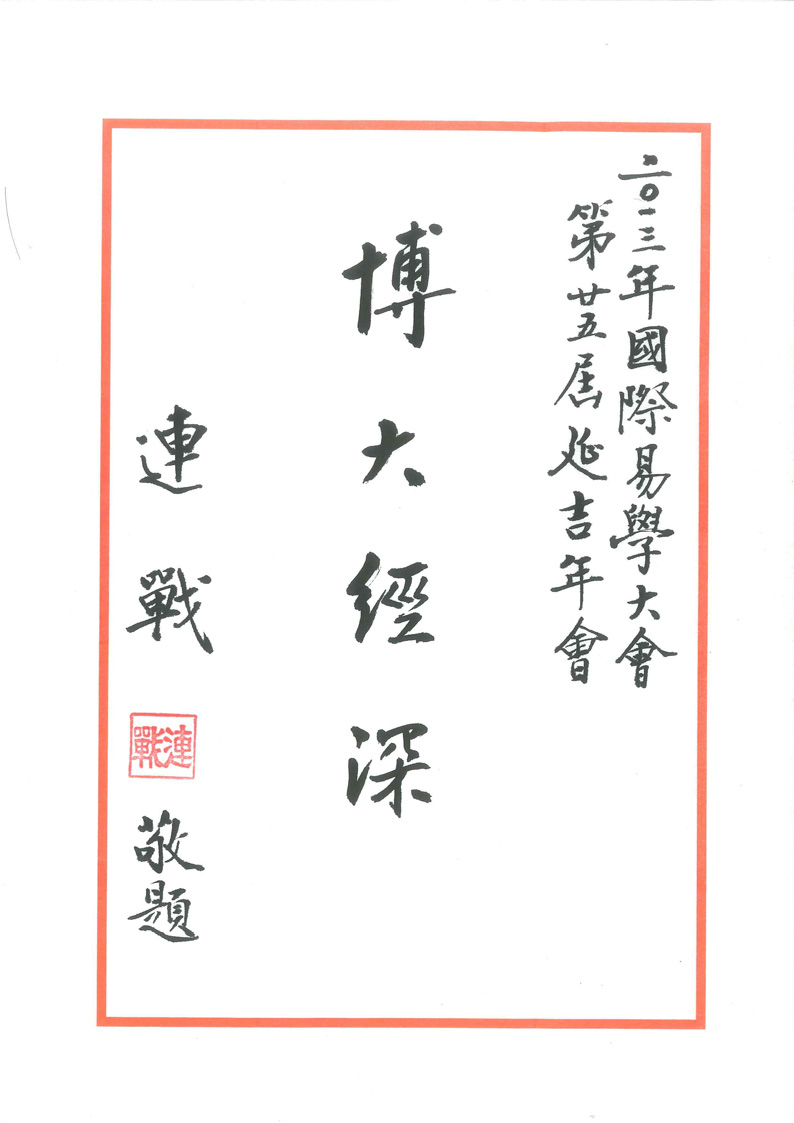 二〇一三年國際易學大會
第廿五屆延吉年會
博大經深
連戰
連戰
敬題